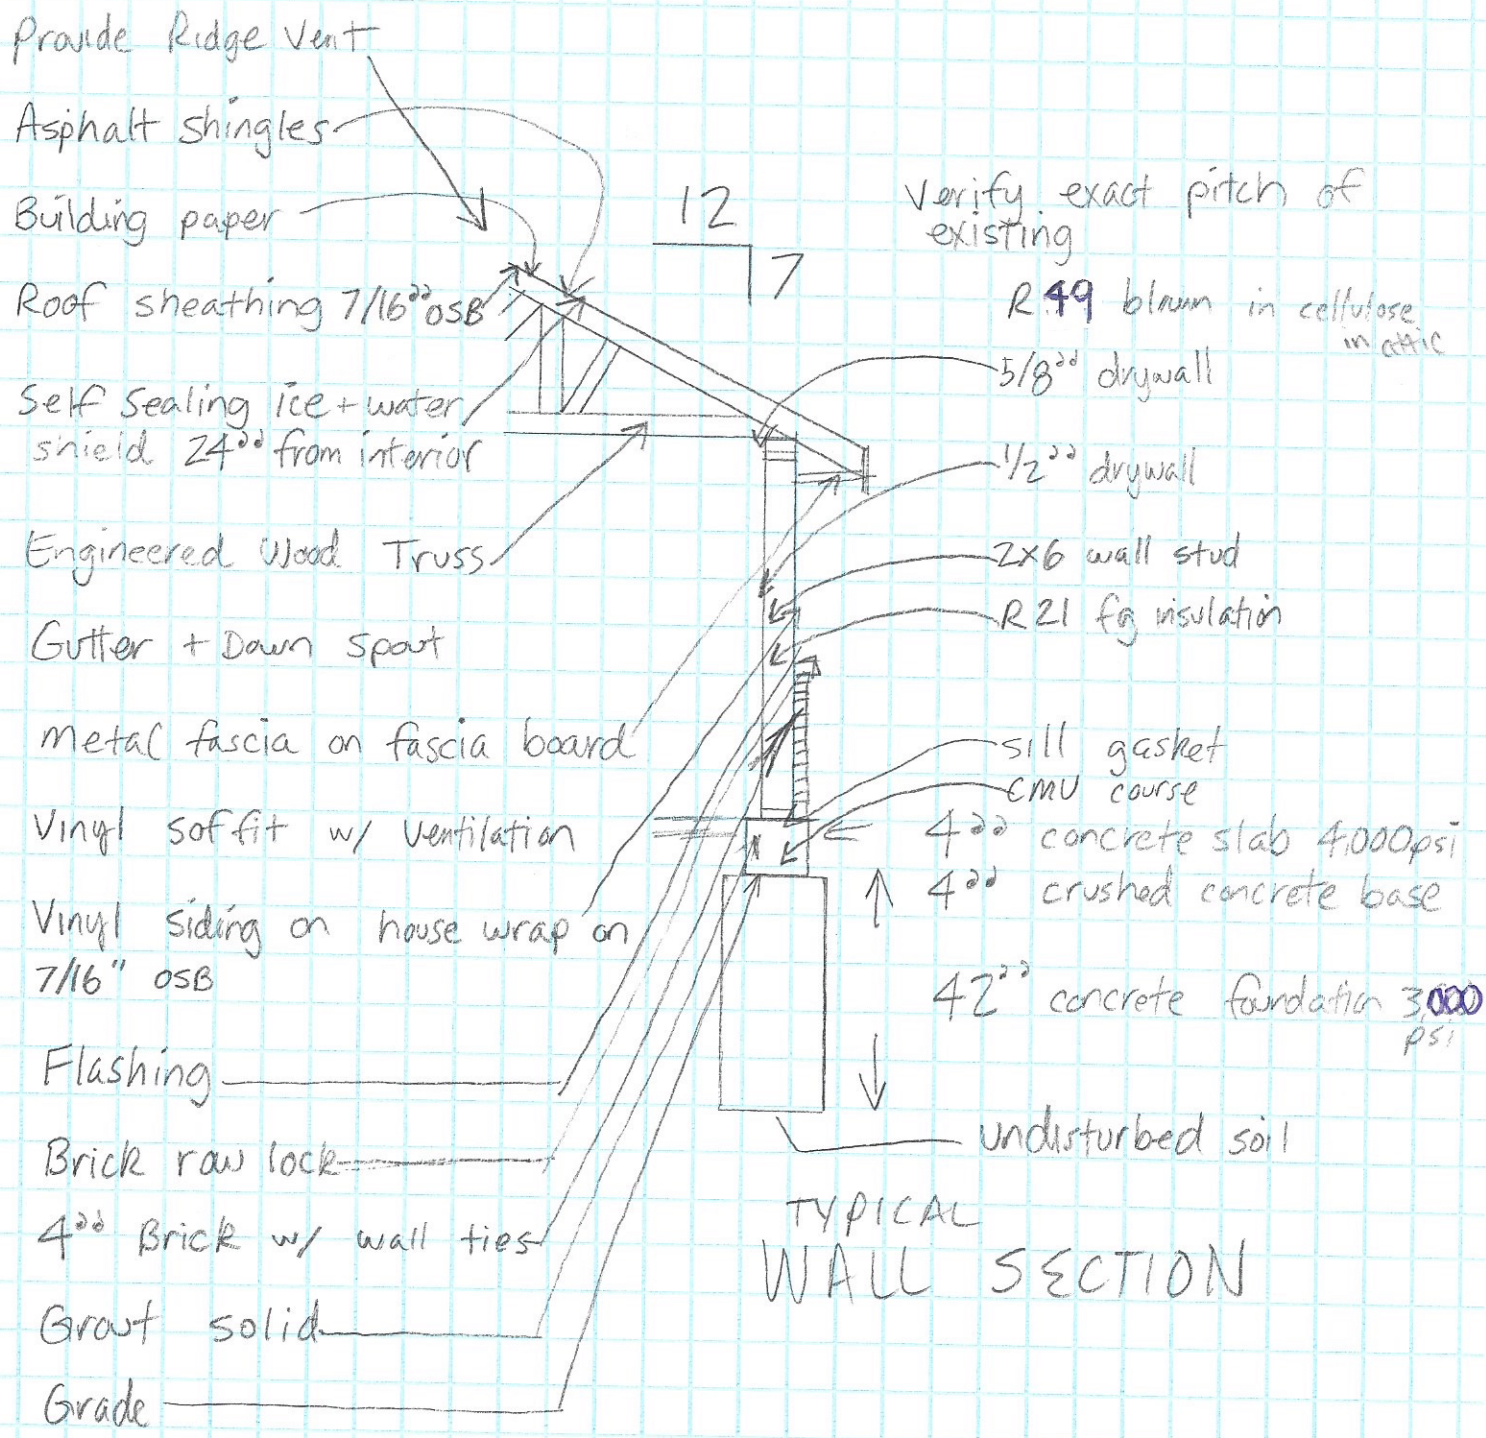 Provide Ridge Vent
Asphalt shingles
Building paper
Roof sheathing 7/16" OSB
Self Sealing ice + water
shield 24" from interior
Engineered Wood Truss
Gutter + Down spout
metal fascia on fascia board
Vinyl soffit w/ Ventilation
Vinyl siding on house wrap on
7/16" OSB
Flashing
Brick row lock
4" Brick w/ wall ties
Grout solid
Grade
12
7
Verify exact pitch of
existing
R 49 blown in cellulose
in attic
5/8" drywall
1/2" drywall
2x6 wall stud
R 21 fg insulation
sill gasket
CMU course
4" concrete slab 4,000psi
4" crushed concrete base
42" concrete foundation 3,000
psi
undisturbed soil
TYPICAL
WALL SECTION